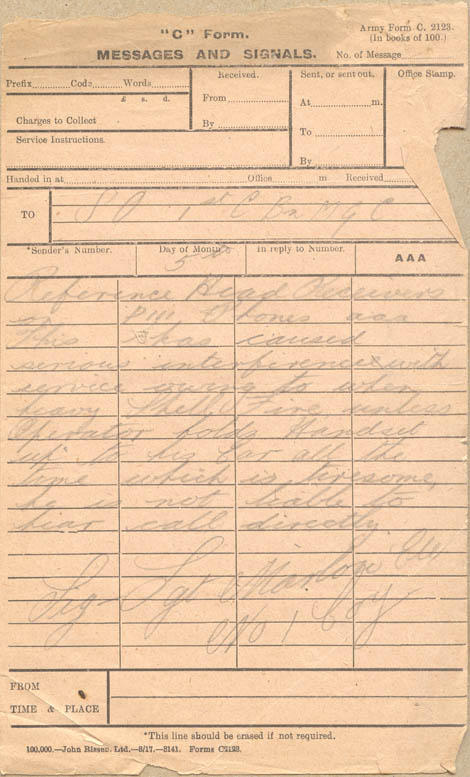 "C" Form.
Army Form C. 2123.
(In books of 100.)
MESSAGES AND SIGNALS.
No. of Message
Prefix Code Words
Received.
Sent, or sent out.
Office Stamp.
£ s. d.
From
At m.
Charges to Collect
By
To
Service Instructions.
By
Handed in at Office m Received
TO S O 1st C Bn M G C
*Sender's Number.
Day of Month
In reply to Number.
AAA
5th
Reference Head Receivers
on D III Phones aaa
This has caused
serious interference with
service owing to when
heavy Shell Fire, unless
Operator holds Handset
up to his Ear all the
time which is tiresome,
he is not liable to
hear call directly
Sig Sgt
No 1 Coy
FROM
TIME & PLACE
*This line should be erased if not required.
100,000.—John Rissen, Ltd.—8/17.—8141. Forms C2123.